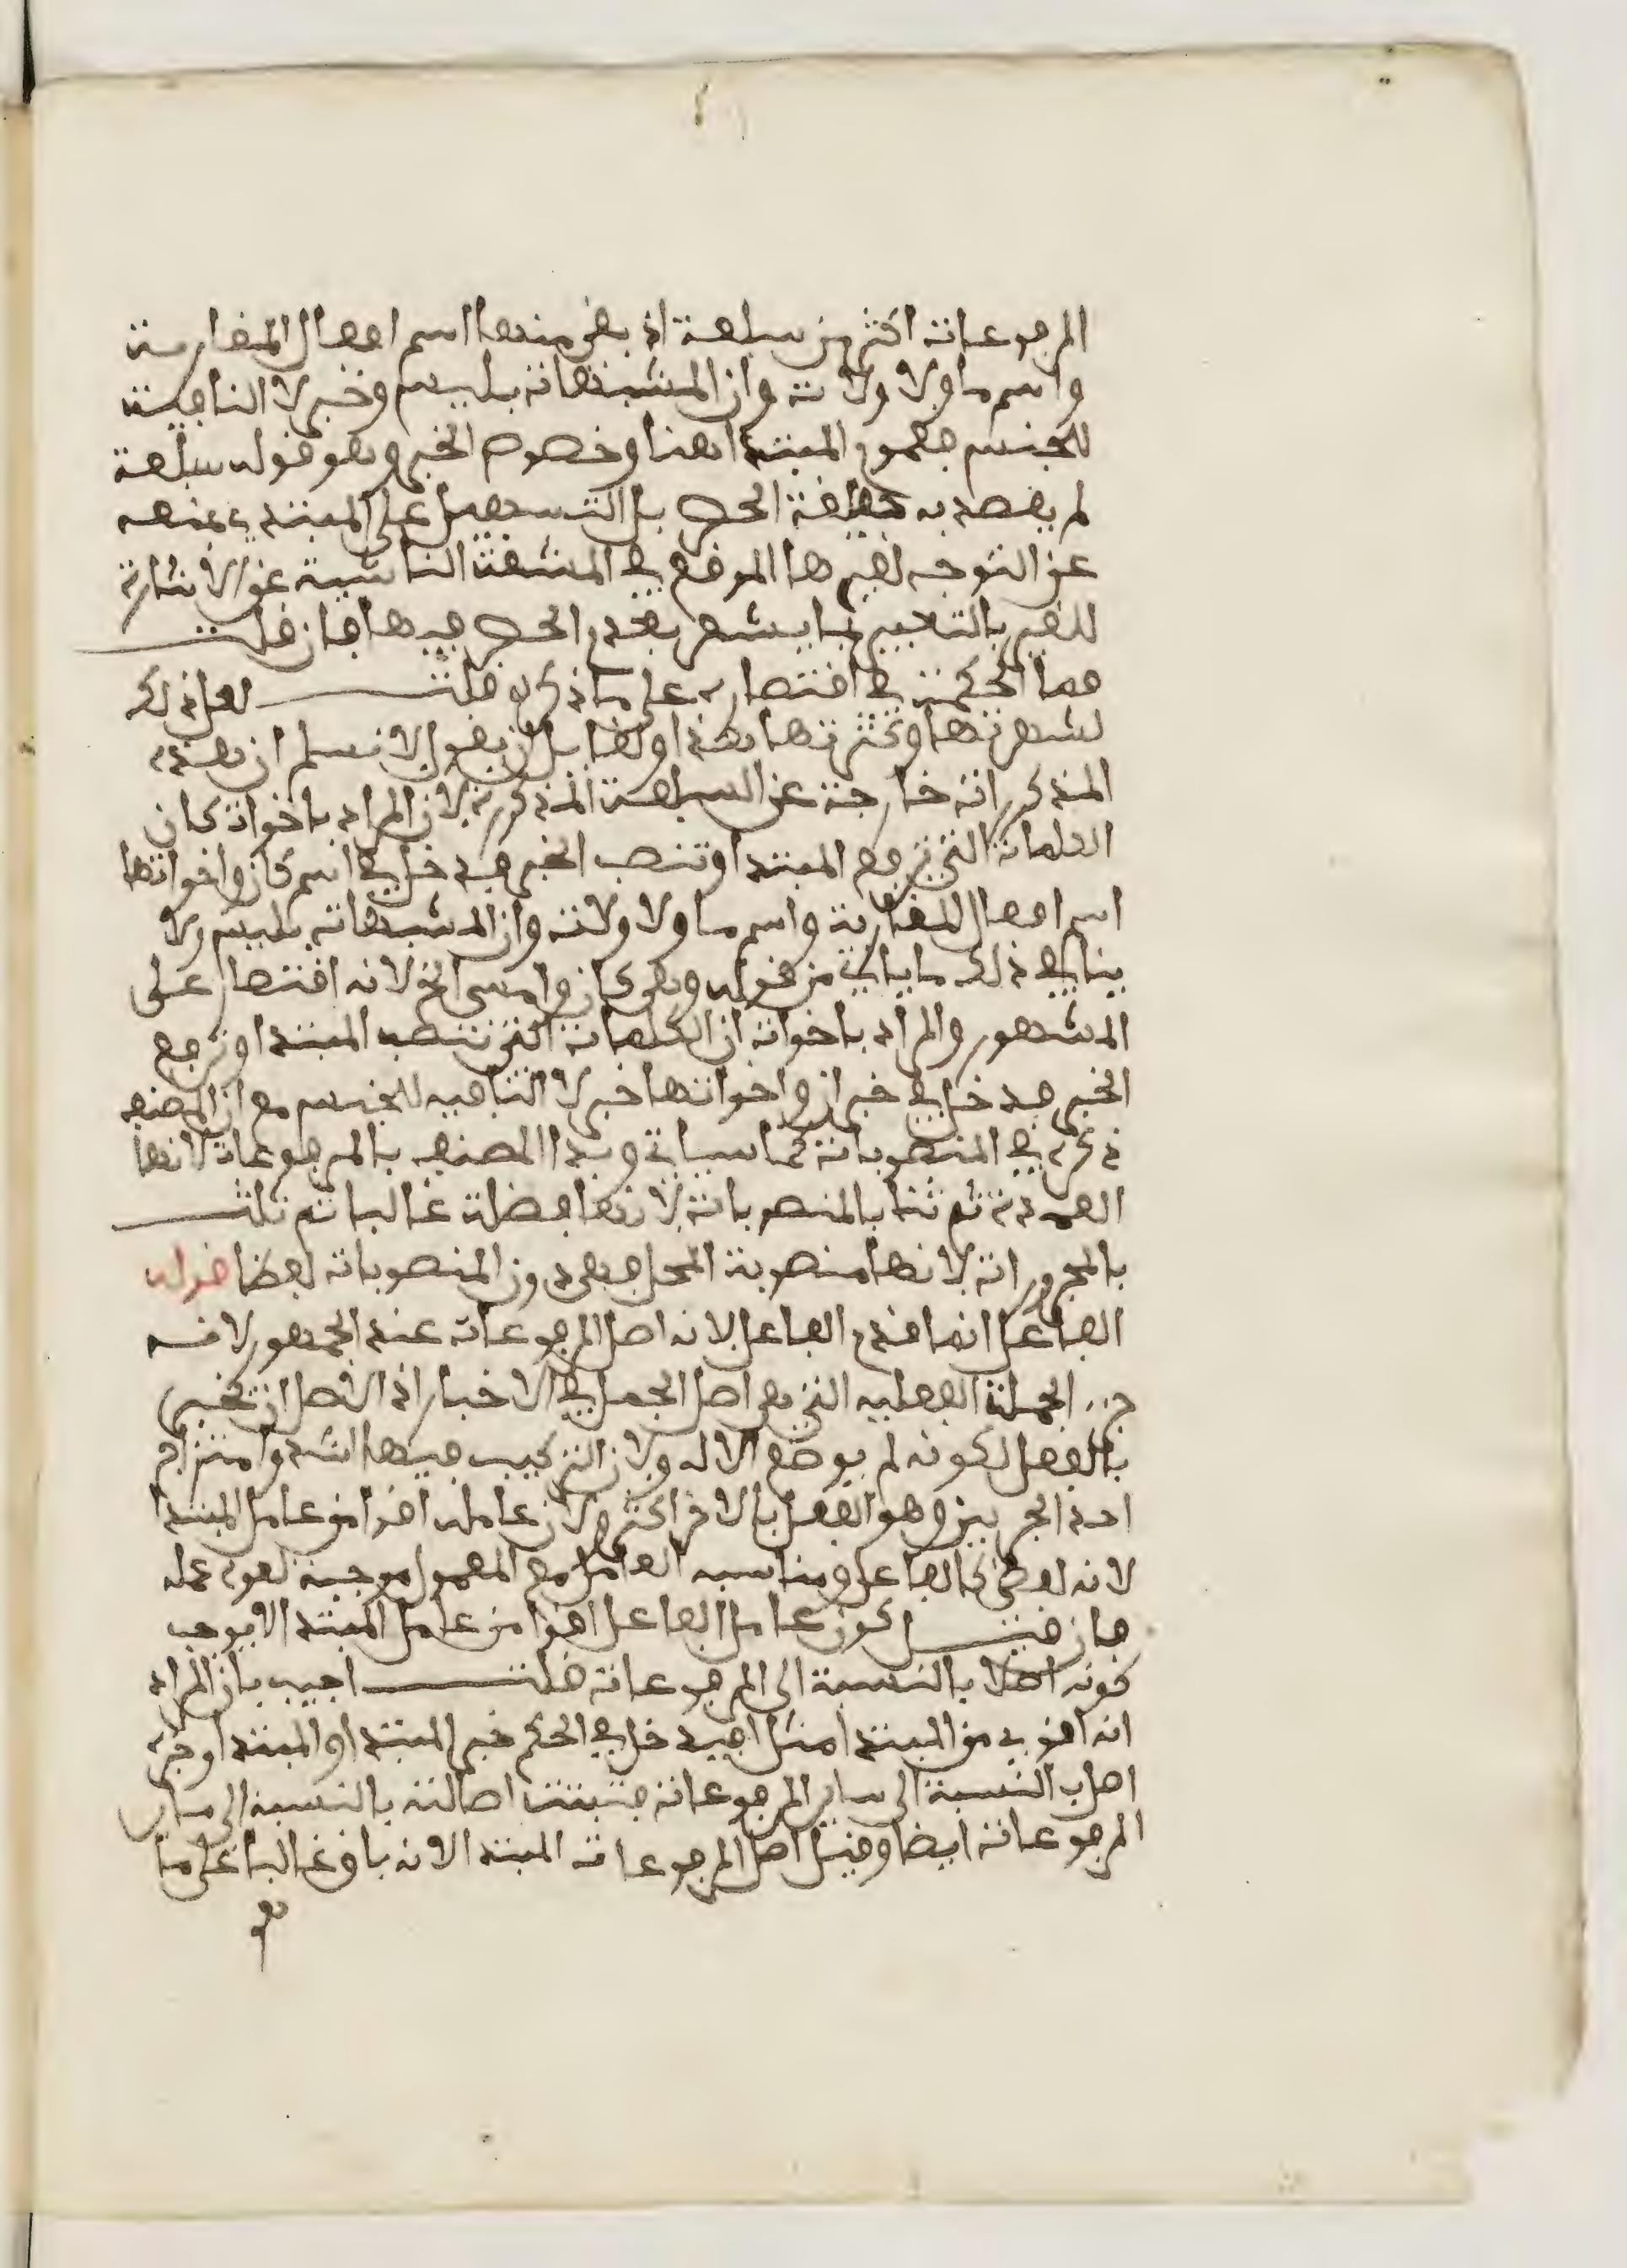 المرفوعات اكثر من سبعة اذ بقي منها اسم افعال المقاربة
واسم ما ولا ولات وان المشبهات بليس وخبر لا النافية
للجنس فعموم المبتدا هنا وخصوص الخبر وهو قوله سبعة
لم يقصد به حقيقة الحصر بل التسهيل على المبتدي بمنعه
عن التوجه لغيرها الموقع في المشقة الناشية عن الاشارة
للغير بالتعبير بما يشعر بعدم الحصر فيها فان قلت
فما الحكمة في اقتصاره على ما ذكره قلت لعل ذلك
لشهرتها وكثرتها هذا ولقايل ان يقول لا نسلم ان هذه
المذكورات خارجة عن السبعة المذكورة لان المراد باخوات كان
الكلمات التي ترفع المبتدا وتنصب الخبر فيدخل في اسم كان واخواتها
اسم افعال المقاربة واسم ما ولا ولات وان المشبهات بليس ولا
ينافي ذلك ما ياتي من قوله وهي كان وامسى الخ لانه اقتصار على
المشهور والمراد باخوات ان الكلمات التي تنصب المبتدا وترفع
الخبر فيدخل في خبر ان واخواتها خبر لا النافيه للجنس مع ان المصنف
ذكره في المنصوبات كما سياتي وبدا المصنف بالمرفوعات لانها
العمدة ثم ثنا بالمنصوبات لانها فضلة غالبا ثم ثلث
بالمجرورات لانها منصوبة المحل فهي دون المنصوبات لفظا قوله
الفاعل انما قدم الفاعل لانه اصل المرفوعات عند الجمهور لانه
جزء الجملة الفعليه التي هي اصل الجمل في الاخبار اذ الاصل ان تخبر
بالفعل لكونه لم يوضع الا له ولان التركيب فيها اشد وامتزاج
احد الجزيين وهو الفعل بالاخر اكثر ولان عامله اقوا من عامل المبتدا
لانه لفظي كالفاعل ومناسبه العامل مع المعمول موجبة لقوة عمله
فان قيل كون عامل الفاعل اقوا من عامل المبتدا لا يوجب
كونه اصلا بالنسبة الى المرفوعات قلت اجيب بان المراد
انه اقوى من المبتدا مثلا فيدخل في الحكم خبر المبتدا والمبتدا وخبره
اصل بالنسبة الى ساير المرفوعات فثبتت اصالته بالنسبه الى ساير
المرفوعات ايضا وقيل اصل المرفوعات المبتدا لانه باق غالبا على ما
هو